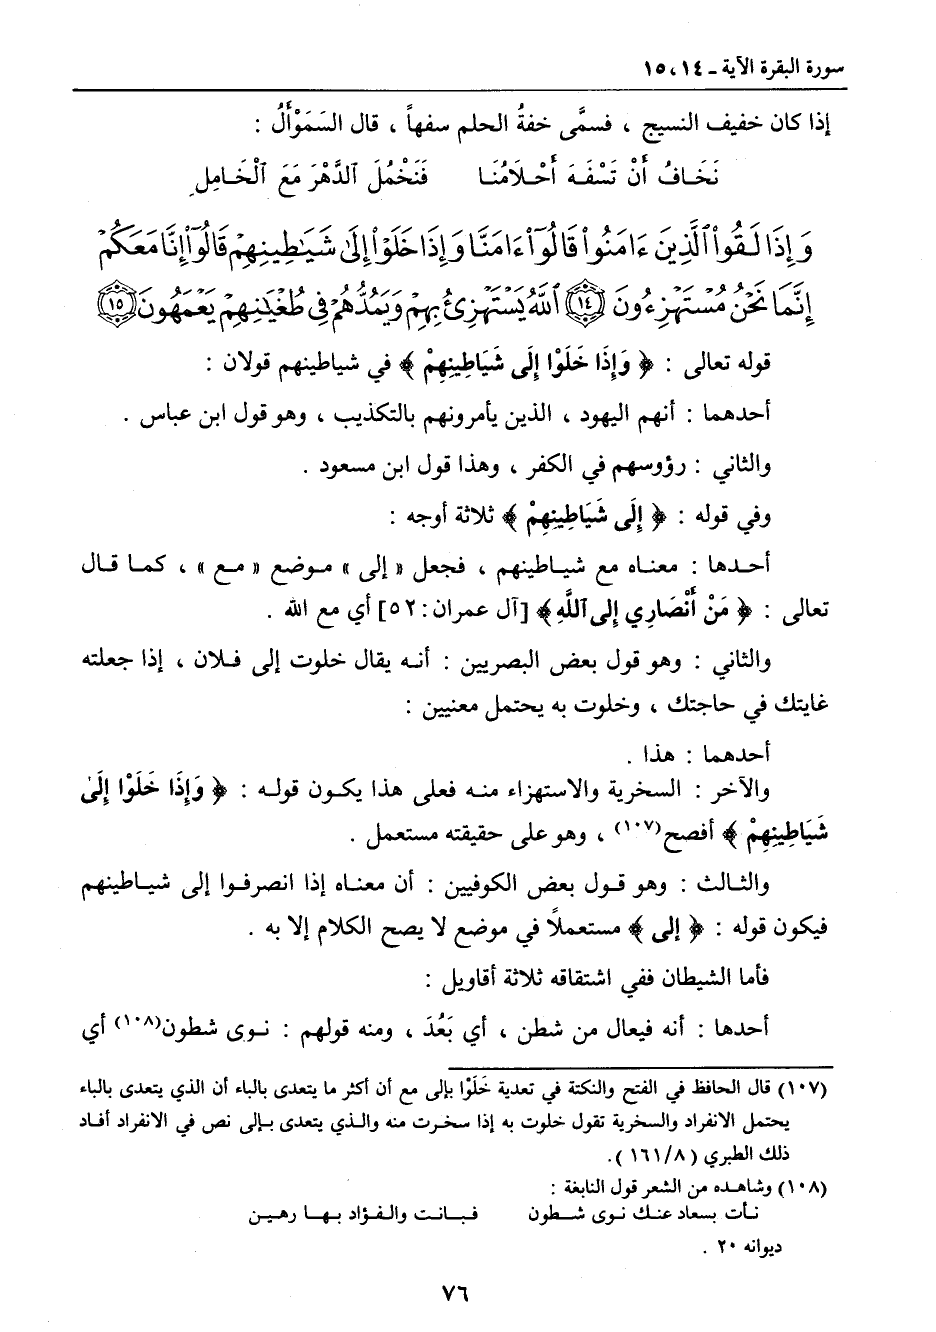 سورة البقرة الآية ـ ١٤، ١٥
إذا كان خفيف النسيج ، فسمَّى خفةُ الحلم سفهاً ، قال السَمَوْأَلُ :
نَخَافُ أَنْ تَسْفَـهَ أَحْـلَامُنَـا فَنَخْمُلَ ٱلدَّهْرَ مَعَ ٱلْخَامِلِ
وَإِذَا لَقُوا۟ ٱلَّذِينَ ءَامَنُوا۟ قَالُوٓا۟ ءَامَنَّا وَإِذَا خَلَوْا۟ إِلَىٰ شَيَـٰطِينِهِمْ قَالُوٓا۟ إِنَّا مَعَكُمْ
إِنَّمَا نَحْنُ مُسْتَهْزِءُونَ ١٤ ٱللَّهُ يَسْتَهْزِئُ بِهِمْ وَيَمُدُّهُمْ فِى طُغْيَـٰنِهِمْ يَعْمَهُونَ ١٥
قوله تعالى : ﴿ وَإِذَا خَلَوْا إِلَى شَيَاطِينِهِمْ ﴾ في شياطينهم قولان :
أحدهما : أنهم اليهود ، الذين يأمرونهم بالتكذيب ، وهو قول ابن عباس .
والثاني : رؤوسهم في الكفر ، وهذا قول ابن مسعود .
وفي قوله : ﴿ إِلَى شَيَاطِينِهِمْ ﴾ ثلاثة أوجه :
أحـدها : معنـاه مع شيـاطينهم ، فجعل « إلى » مـوضع « مـع » ، كمـا قـال
تعالى : ﴿ مَنْ أَنْصَارِي إِلى ٱللَّهِ ﴾ [آل عمران: ٥٢] أي مع الله .
والثاني : وهو قول بعض البصريين : أنـه يقال خلوت إلى فـلان ، إذا جعلته
غايتك في حاجتك ، وخلوت به يحتمل معنيين :
أحدهما : هذا .
والآخر : السخرية والاستهزاء منـه فعلى هذا يكـون قولـه : ﴿ وَإِذَا خَلَوْا إِلَىٰ
شَيَاطِينِهِمْ ﴾ أفصح(١٠٧) ، وهو على حقيقته مستعمل .
والثـالث : وهو قـول بعض الكوفيين : أن معنـاه إذا انصرفـوا إلى شيـاطينهم
فيكون قوله : ﴿ إلى ﴾ مستعملاً في موضع لا يصح الكلام إلا به .
فأما الشيطان ففي اشتقاقه ثلاثة أقاويل :
أحدها : أنه فيعال من شطن ، أي بَعُدَ ، ومنه قولهم : نـوى شطون(١٠٨) أي
(١٠٧) قال الحافظ في الفتح والنكتة في تعدية خَلَوْا بإلى مع أن أكثر ما يتعدى بالباء أن الذي يتعدى بالباء
يحتمل الانفراد والسخرية تقول خلوت به إذا سخـرت منه والـذي يتعدى بـإلى نص في الانفراد أفـاد
ذلك الطبري ( ١٦١/٨ ).
(١٠٨) وشاهده من الشعر قول النابغة :
نـأت بسعاد عنـك نـوى شـطون فـبـانـت والـفـؤاد بـهـا رهـيـن
ديوانه ٢٠ .
٧٦